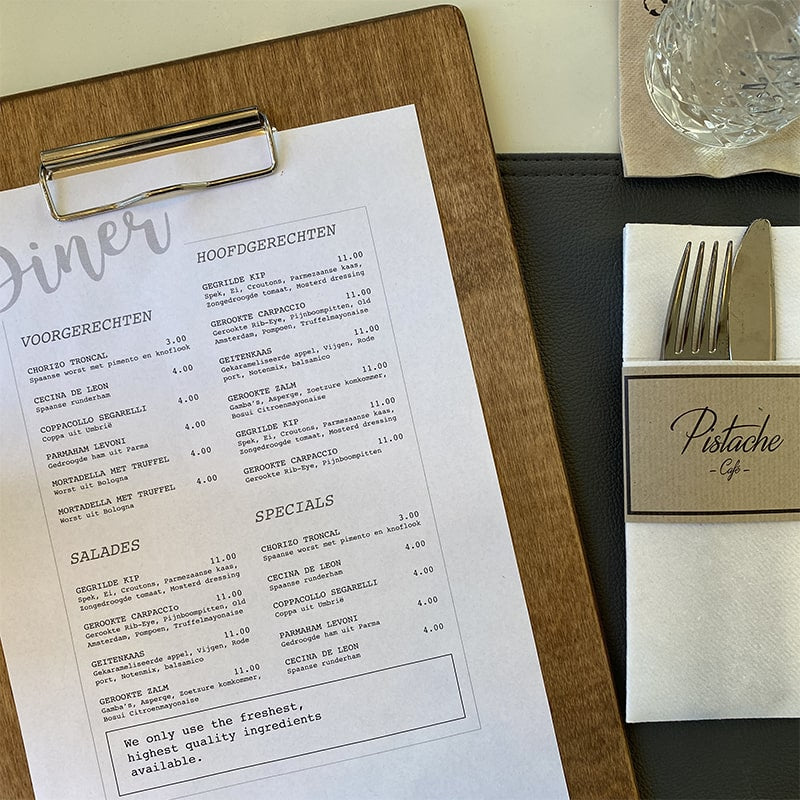 Diner
VOORGERECHTEN
CHORIZO TRONCAL 3.00
Spaanse worst met pimento en knoflook
CECINA DE LEON 4.00
Spaanse runderham
COPPACOLLO SEGARELLI 4.00
Coppa uit Umbrië
PARMAHAM LEVONI 4.00
Gedroogde ham uit Parma
MORTADELLA MET TRUFFEL 4.00
Worst uit Bologna
MORTADELLA MET TRUFFEL 4.00
Worst uit Bologna
SALADES
GEGRILDE KIP 11.00
Spek, Ei, Croutons, Parmezaanse kaas,
Zongedroogde tomaat, Mosterd dressing
GEROOKTE CARPACCIO 11.00
Gerookte Rib-Eye, Pijnboompitten, Old
Amsterdam, Pompoen, Truffelmayonaise
GEITENKAAS 11.00
Gekarameliseerde appel, Vijgen, Rode
port, Notenmix, balsamico
GEROOKTE ZALM 11.00
Gamba's, Asperge, Zoetzure komkommer,
Bosui Citroenmayonaise
HOOFDGERECHTEN
GEGRILDE KIP 11.00
Spek, Ei, Croutons, Parmezaanse kaas,
Zongedroogde tomaat, Mosterd dressing
GEROOKTE CARPACCIO 11.00
Gerookte Rib-Eye, Pijnboompitten, Old
Amsterdam, Pompoen, Truffelmayonaise
GEITENKAAS 11.00
Gekarameliseerde appel, Vijgen, Rode
port, Notenmix, balsamico
GEROOKTE ZALM 11.00
Gamba's, Asperge, Zoetzure komkommer,
Bosui Citroenmayonaise
GEGRILDE KIP 11.00
Spek, Ei, Croutons, Parmezaanse kaas,
Zongedroogde tomaat, Mosterd dressing
GEROOKTE CARPACCIO 11.00
Gerookte Rib-Eye, Pijnboompitten
SPECIALS
CHORIZO TRONCAL 3.00
Spaanse worst met pimento en knoflook
CECINA DE LEON 4.00
Spaanse runderham
COPPACOLLO SEGARELLI 4.00
Coppa uit Umbrië
PARMAHAM LEVONI 4.00
Gedroogde ham uit Parma
CECINA DE LEON 4.00
Spaanse runderham
We only use the freshest,
highest quality ingredients
available.
Pistache
- Café -